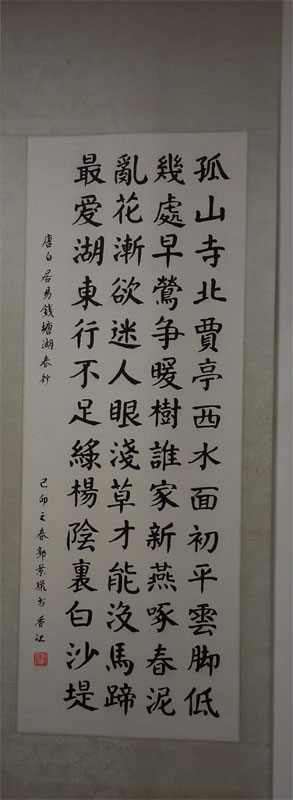 孤山寺北賈亭西水面初平雲脚低
幾處早鶯争暖樹誰家新燕啄春泥
亂花漸欲迷人眼淺草才能没馬蹄
最爱湖東行不足綠楊陰裏白沙堤
唐白居易錢塘湖春行
己卯之春郭景環书香江